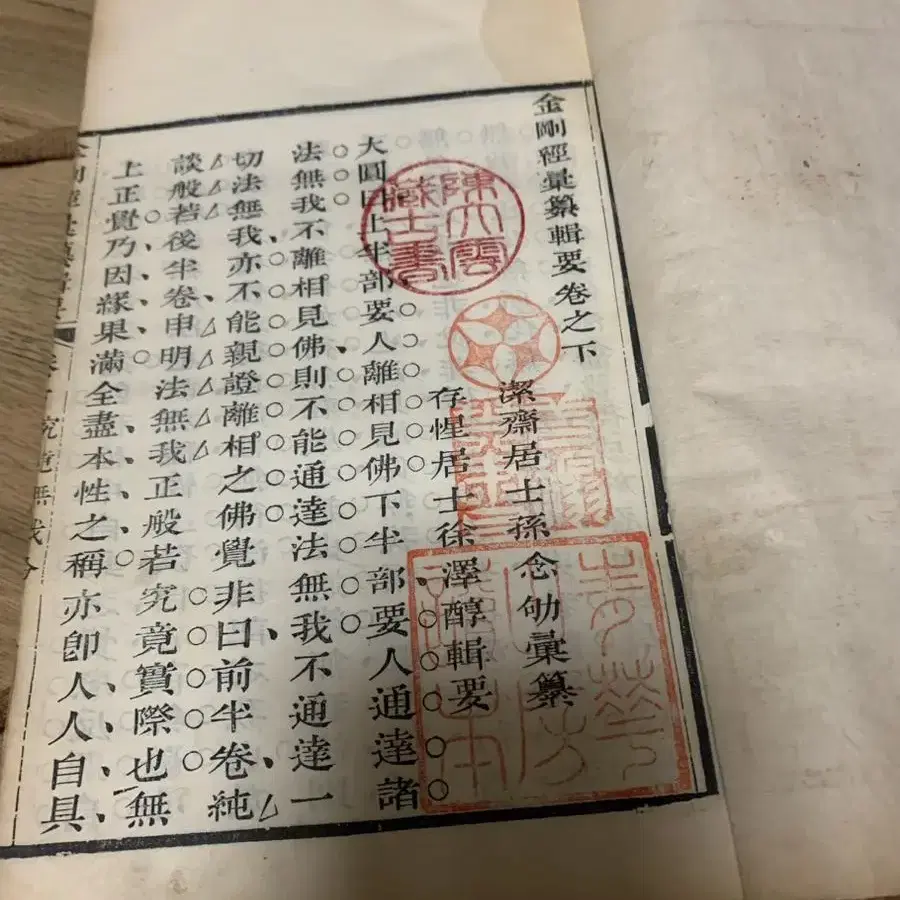 金剛經彙纂輯要卷之下
潔齋居士孫念劬彙纂
存惺居士徐澤醇輯要
大圓曰上半部要人離相見佛下半部要人通達諸
法無我不離相見佛、則不能通達法無我不通達一
切法無我、亦不能親證離相之佛覺非曰、前半卷、純
談般若後半卷、申明法無我正般若究竟實際也無
上正覺乃、因、緣、果、滿全盡本、性、之、稱亦卽人、人、自、具、
究竟無我分